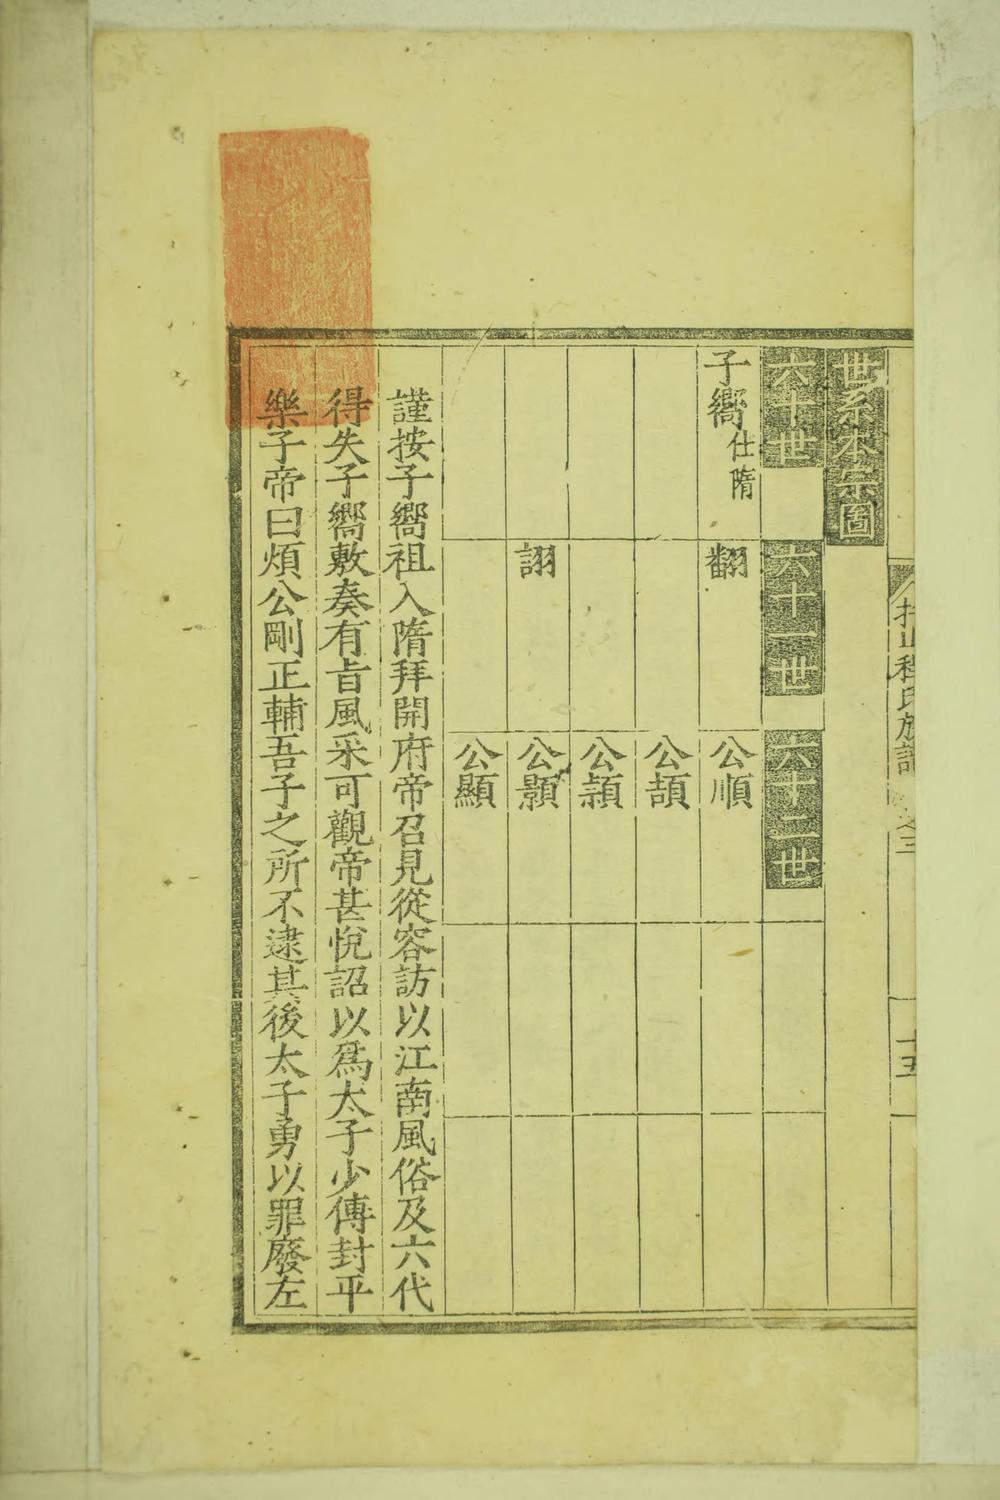 世系本宗圖
六十世
六十一世
六十二世
子嚮仕隋
翻
公順
公頡
公頴
詡
公顥
公顯
謹按子嚮祖入隋拜開府帝召見從容訪以江南風俗及六代
得失子嚮敷奏有旨風采可觀帝甚悅詔以爲太子少傅封平
樂子帝曰煩公剛正輔吾子之所不逮其後太子勇以罪廢左
程氏族譜
之三
十五